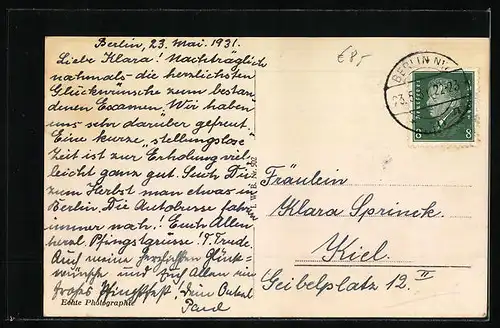 Berlin, 23. Mai. 1931.
Liebe Klara! Nachträglich
nochmals die herzlichsten
Glückwünsche zum bestan-
denen Examen. Wir haben
uns sehr darüber gefreut.
Eine kurze „stellungslose"
Zeit ist zur Erholung viel-
leicht ganz gut. Sucht Dir
zum Herbst man etwas in
Berlin. Die Autobusse fahren
immer noch! Euch Allen
herzl. Pfingstgrüsse! T. Trude.
Auch meine herzlichsten Glück-
wünsche und Euch Allen ein
frohes Pfingstfest, Dein Onkel
Paul
Echte Photographie
€8,-
BERLIN N
23.5. 22-23
8 8
Fräulein
Klara Sprinck.
Kiel.
Geibelplatz 12. II